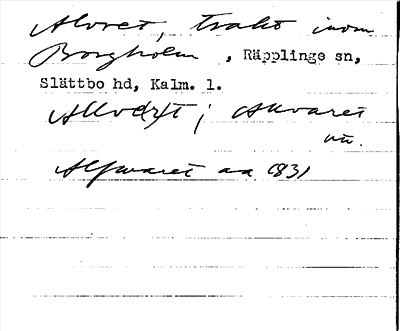 Alvret, trakt inom
Borgholm, Räpplinge sn,
Slättbo hd, Kalm. l.
Allvaret
nu.
Alfwaret aa 1831